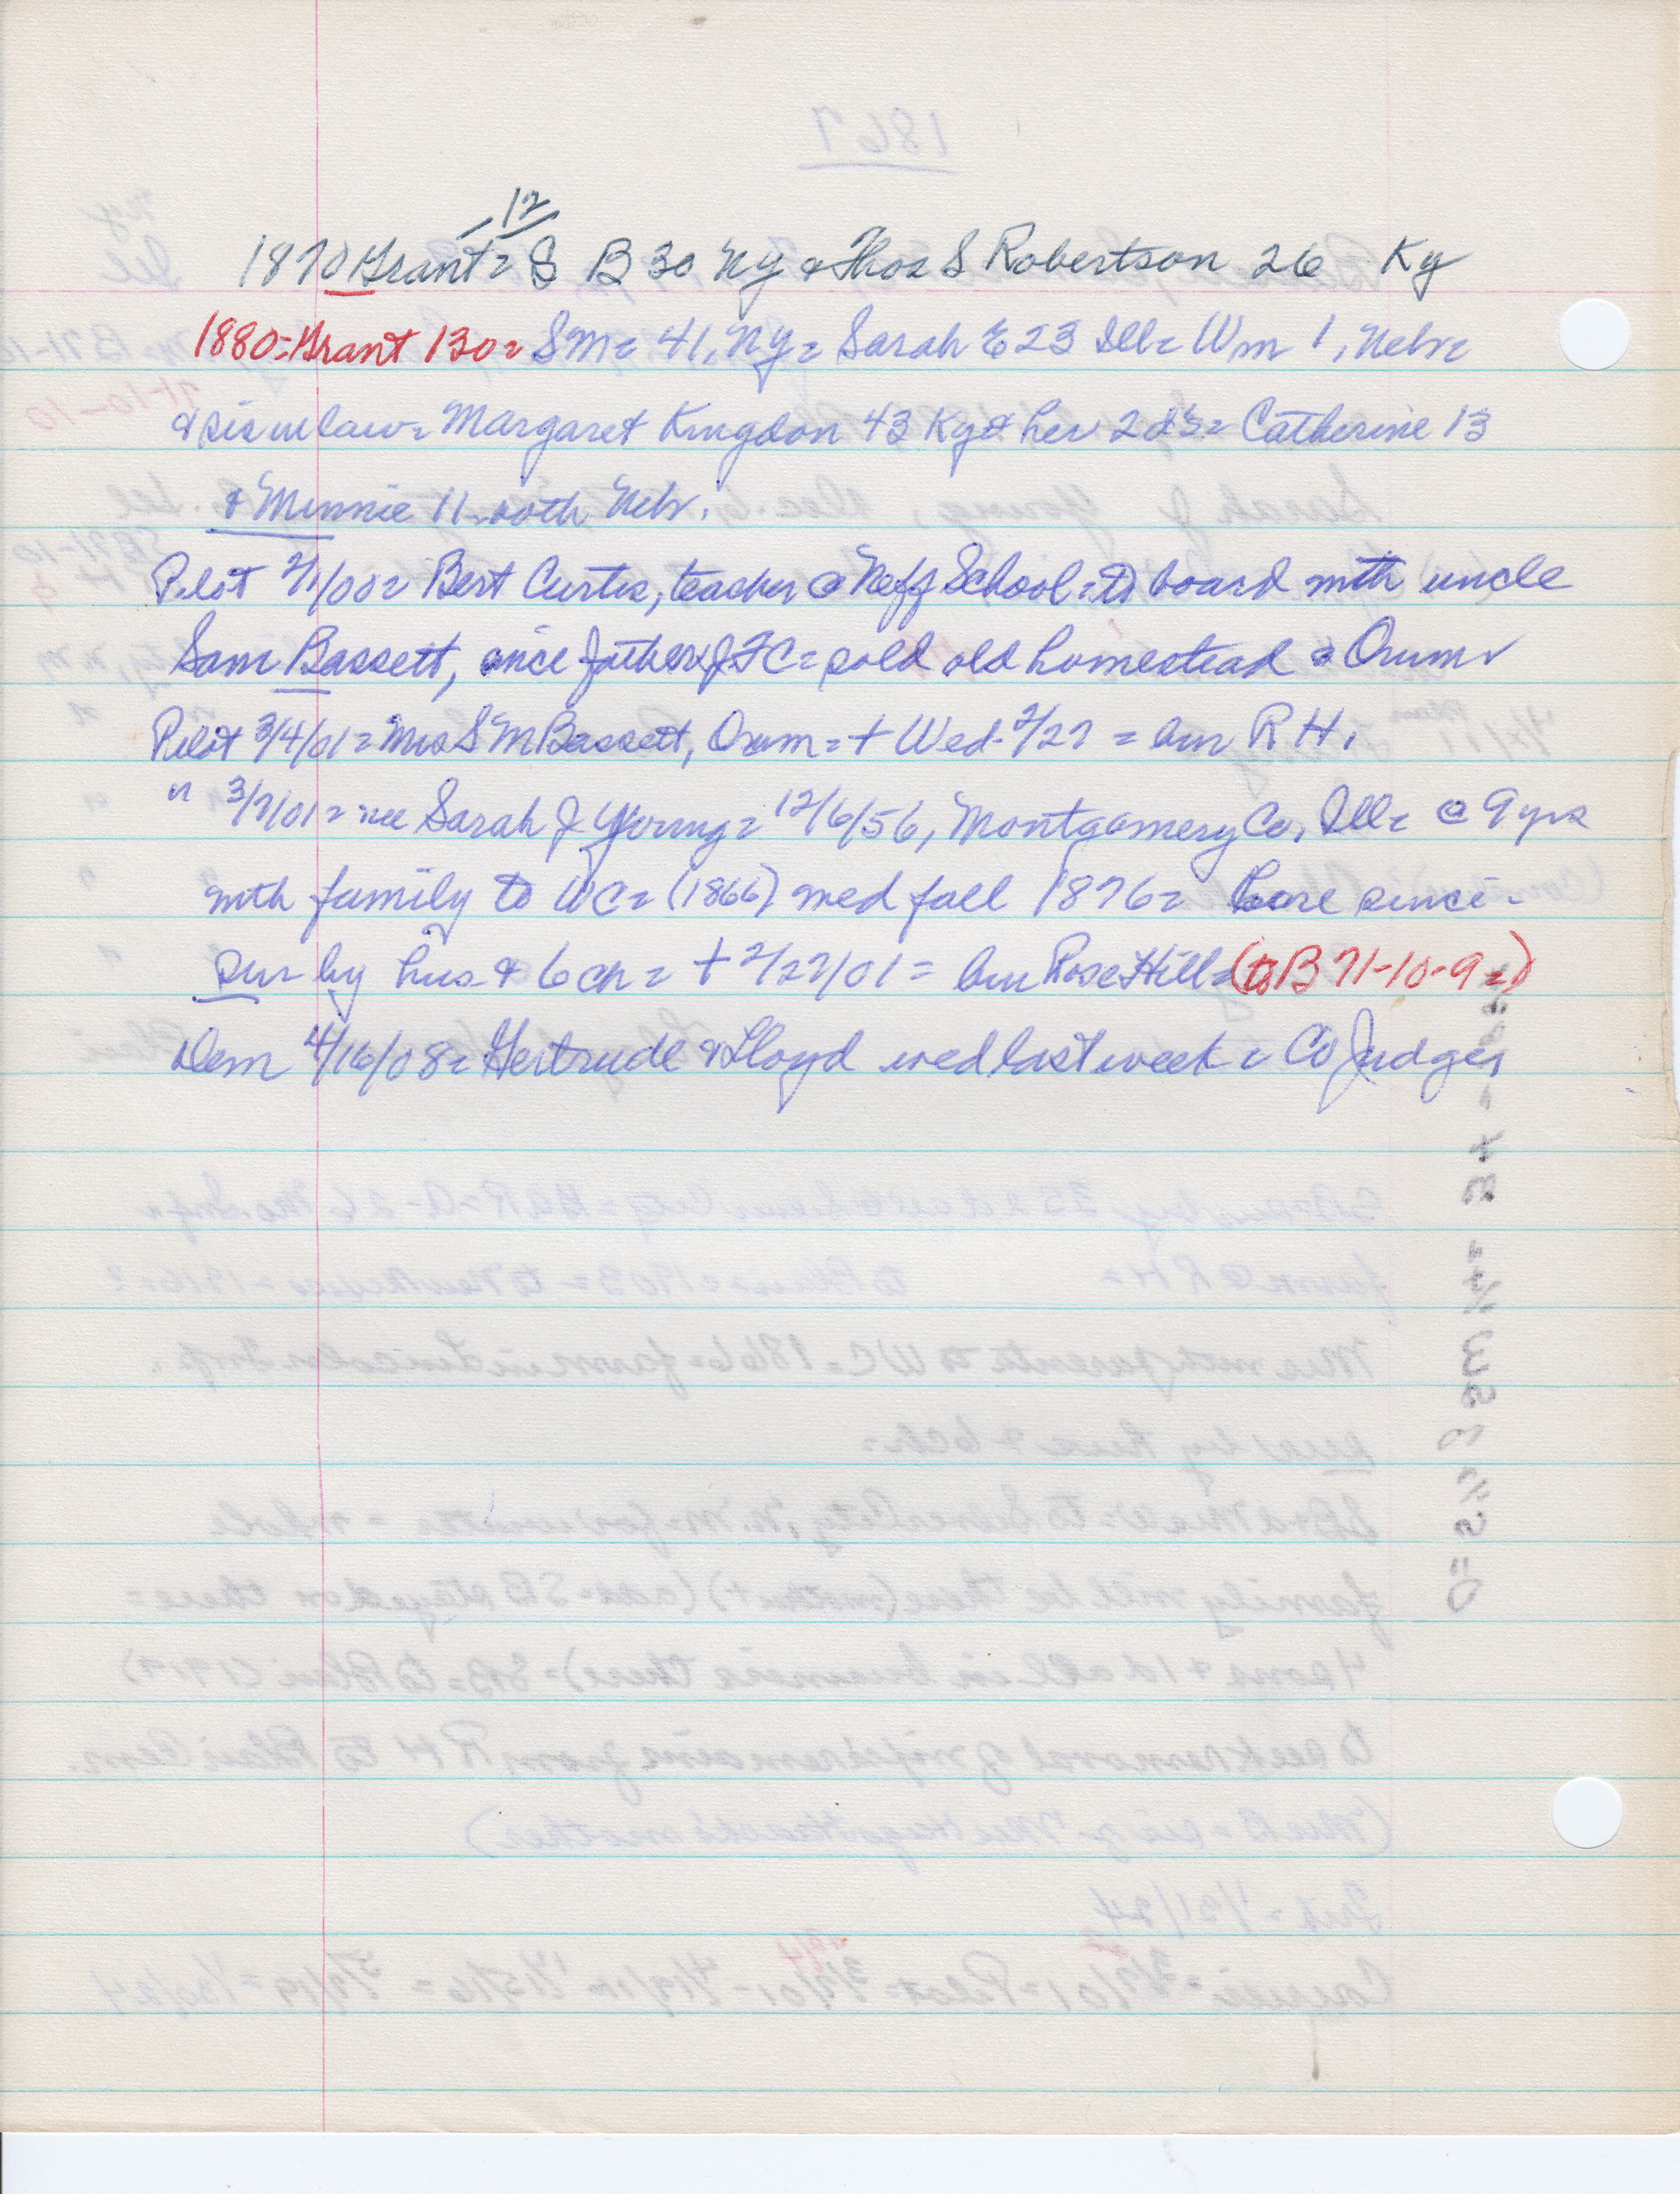 12
1870 Grant = S B 30 NY & Thos S Robertson 26 Ky
1880 = Grant 130 = SM = 41, NY = Sarah E 23 Ill = Wm 1, Nebr =
& sis in law = Margaret Kingdon 43 Ky & her 2 d's = Catherine 13
& Minnie 11 = both Nebr.
Pilot 2/1/00 = Bert Curtis, teacher @ Neff School = to board with uncle
Sam Bassett, since father JFC = sold old homestead @ Orum
Pilot 3/4/01 = Mrs S M Bassett, Orum = + Wed. 2/27 = bur R H.
" 3/7/01 = nee Sarah J Young = 12/6/56, Montgomery Co, Ill = @ 9 yrs
with family to WC = (1866) wed fall 1876 = here since.
sur by hus & 6 ch = + 2/27/01 = bur Rose Hill = (to B 71-10-9 =)
Dem 4/16/08 = Gertrude & Lloyd wed last week = Co Judge,